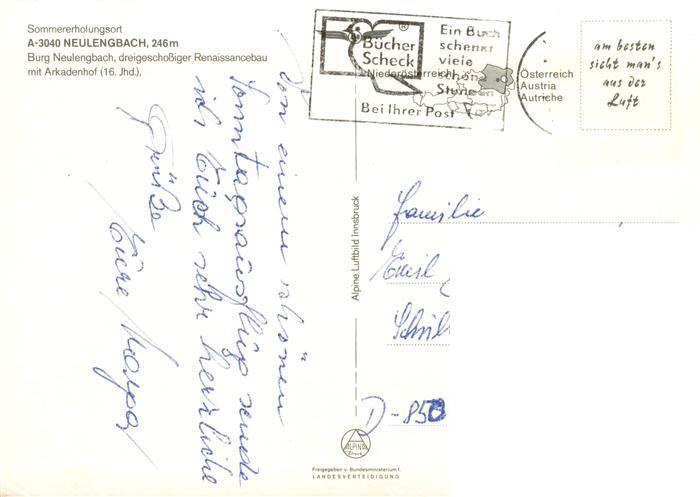 Sommererholungsort
A-3040 NEULENGBACH, 246m
Burg Neulengbach, dreigeschoßiger Renaissancebau
mit Arkadenhof (16. Jhd.),
Von einem schönen
Sonntagsausflug sende
ich Euch sehr herzliche
Grüße
Eure
Bücher
Scheck
®
Ein Buch
schenkt
viele
schöne
Stunden
Bei Ihrer Post
Niederösterreich
Österreich
Austria
Autriche
am besten
sieht man's
aus der
Luft
Familie
Emil
D-850
Alpine Luftbild Innsbruck
ALPINE
Freigegeben v. Bundesministerium f.
LANDESVERTEIDIGUNG